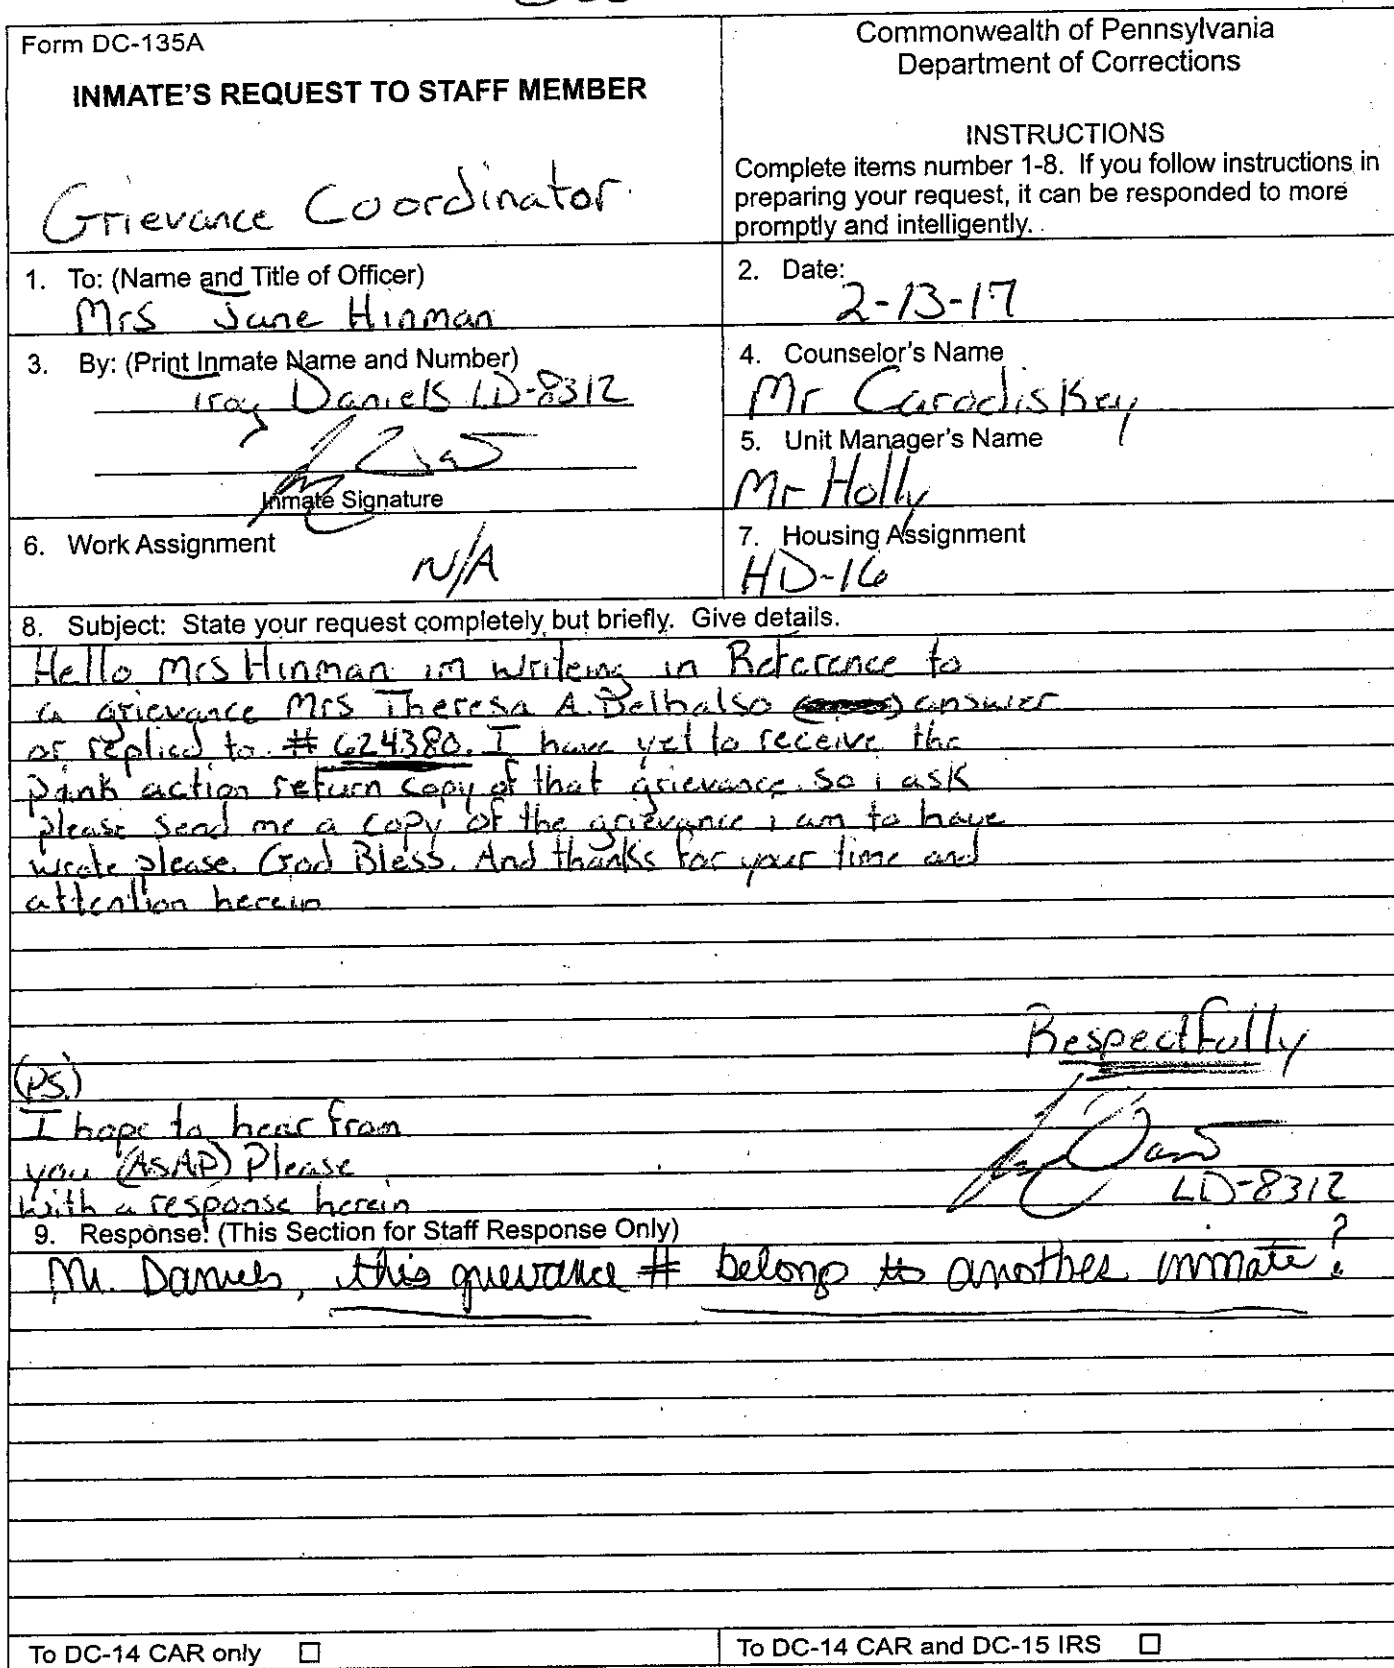 Form DC-135A
INMATE'S REQUEST TO STAFF MEMBER
Grievance Coordinator
Commonwealth of Pennsylvania
Department of Corrections
INSTRUCTIONS
Complete items number 1-8. If you follow instructions in
preparing your request, it can be responded to more
promptly and intelligently.
1. To: (Name and Title of Officer)
Mrs Jane Hinman
2. Date:
2-13-17
3. By: (Print Inmate Name and Number)
Troy Daniels LD-8312
Inmate Signature
4. Counselor's Name
Mr Carodiskey
5. Unit Manager's Name
Mr Holly
6. Work Assignment
N/A
7. Housing Assignment
HD-16
8. Subject: State your request completely but briefly. Give details.
Hello Mrs Hinman im writeing in Reference to
a grievance Mrs Theresa A. Delbalso answer
or replied to # 624380. I have yet to receive the
pink action return copy of that grievance. So i ask
please send me a copy of the grievance i am to have
wrote please. God Bless. And thanks for your time and
attention herein
Respectfully
(PS.)
I hope to hear from
you (ASAP) Please
with a response herein
LD-8312
9. Response: (This Section for Staff Response Only)
Mr. Daniels, this grievance # belong to another inmate?
To DC-14 CAR only ☐
To DC-14 CAR and DC-15 IRS ☐